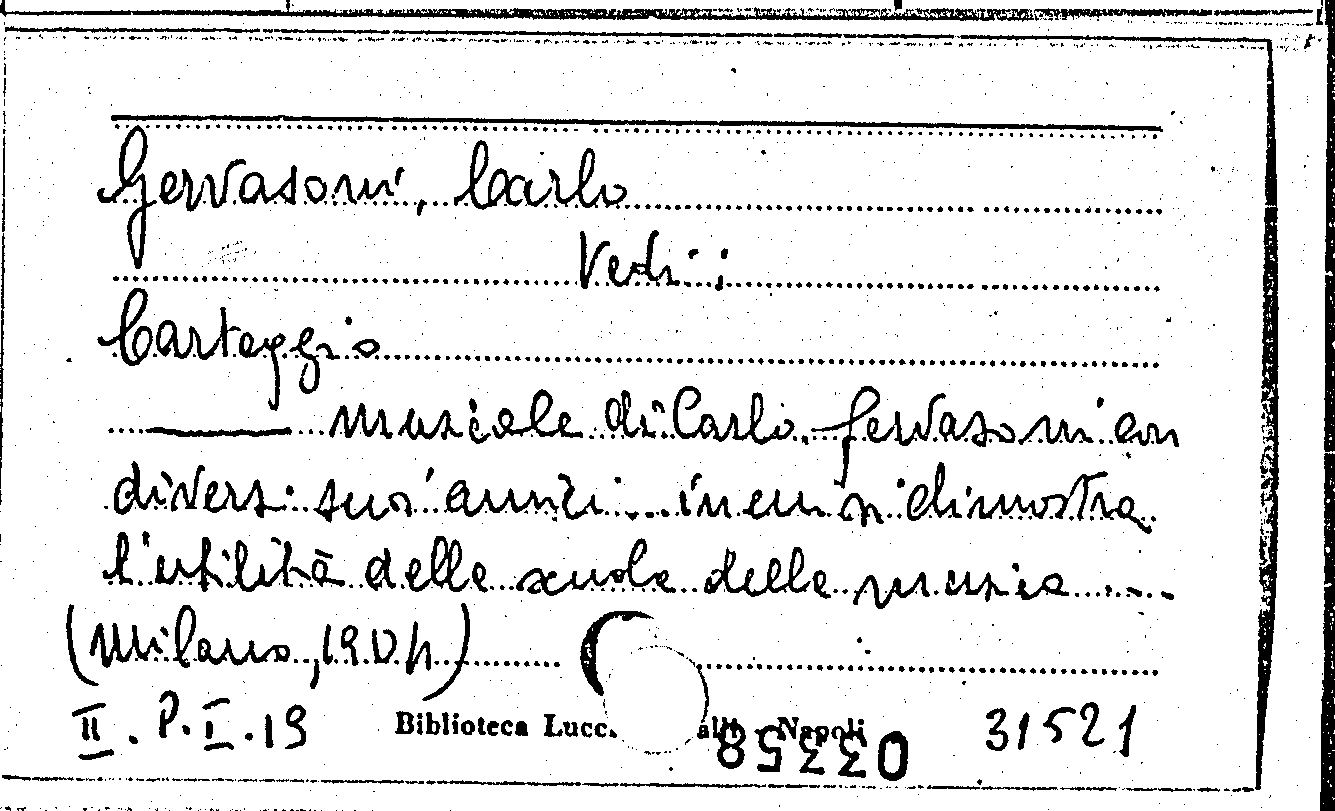 Gervasoni, Carlo
Vedi:
Carteggio
musicale di Carlo Gervasoni con
diversi suoi amici... in cui si dimostra
l'utilità della scuola della musica ....
(Milano, 1904)
II. P. I. 19 Biblioteca Lucc. alli - Napoli 31521
03358